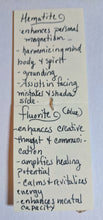 Hematite C)
-enhances personal
magnetism
-harmonizing mind
body & spirit
- grounding
-Assists in facing
mistakes & shadow
side.
fluorite C (blue)
-enhances creative
thought & communi-
cation
-amplifies healing
Potential
-calms & revitalizes
energy
-enhances mental
capacity